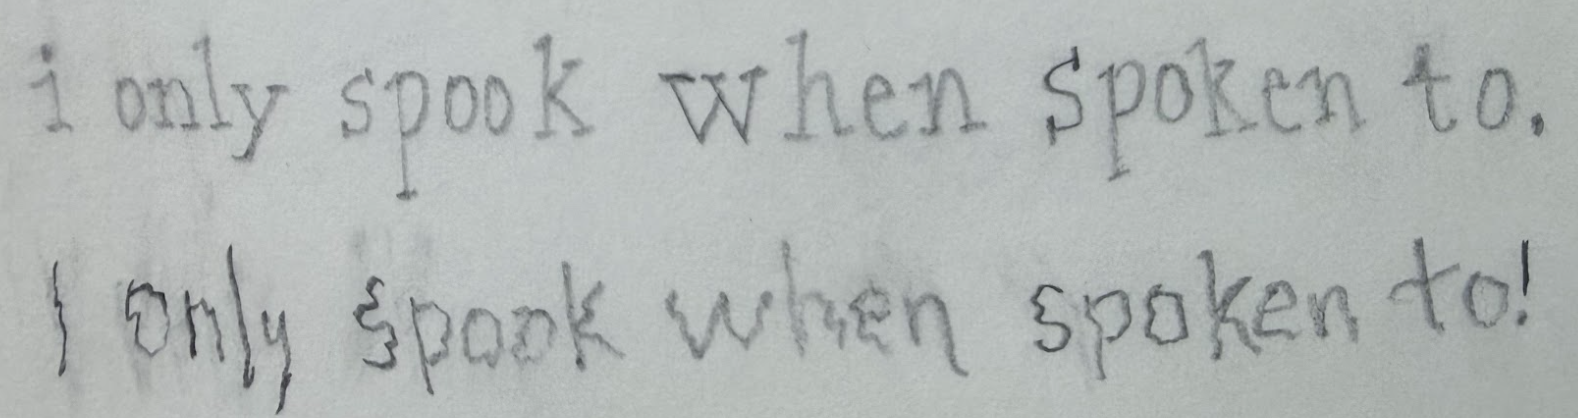 i only spook when spoken to.
I only spook when spoken to!